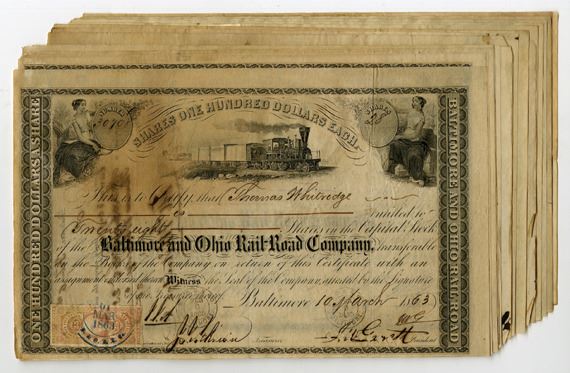 NUMBER
SHARES
SHARES ONE HUNDRED DOLLARS EACH.
ONE HUNDRED DOLLARS A SHARE
BALTIMORE AND OHIO RAIL-ROAD
This is to Certify, that Thomas Whitridge
is entitled to
Twenty eight Shares in the Capital Stock
of the Baltimore and Ohio Rail-Road Company, Transferable
on the Books of the Company on return of this Certificate with an
assignment endorsed thereon Witness the Seal of the Company, attested by the Signature
of the
Baltimore 10 March 1863
MAR
1863
Treasurer
President